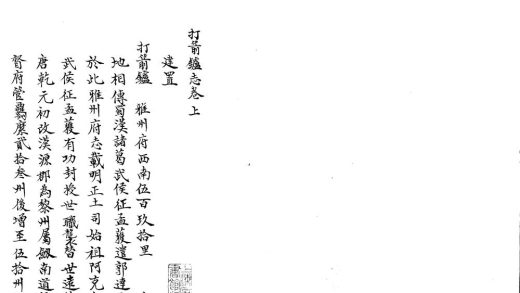 打箭鑪志卷上
建置
打箭鑪 雅州府西南伍百玖拾里
地相傳蜀漢諸葛武侯征孟獲遣郭達
於此雅州府志載明正土司始祖阿克
武侯征孟獲有功封授世職襲替世遠
唐乾元初改漢源郡為黎州屬劔南道
督府管羈縻貳拾叁州後增至伍拾州